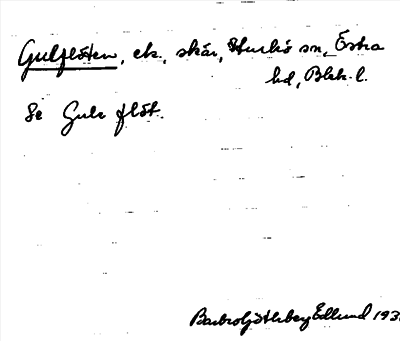 Gulflöten, ek., skär, Sturkö sn, Östra
hd, Blek. l.
Se Gule flöt.
Barbro Götleborg Edlund 193